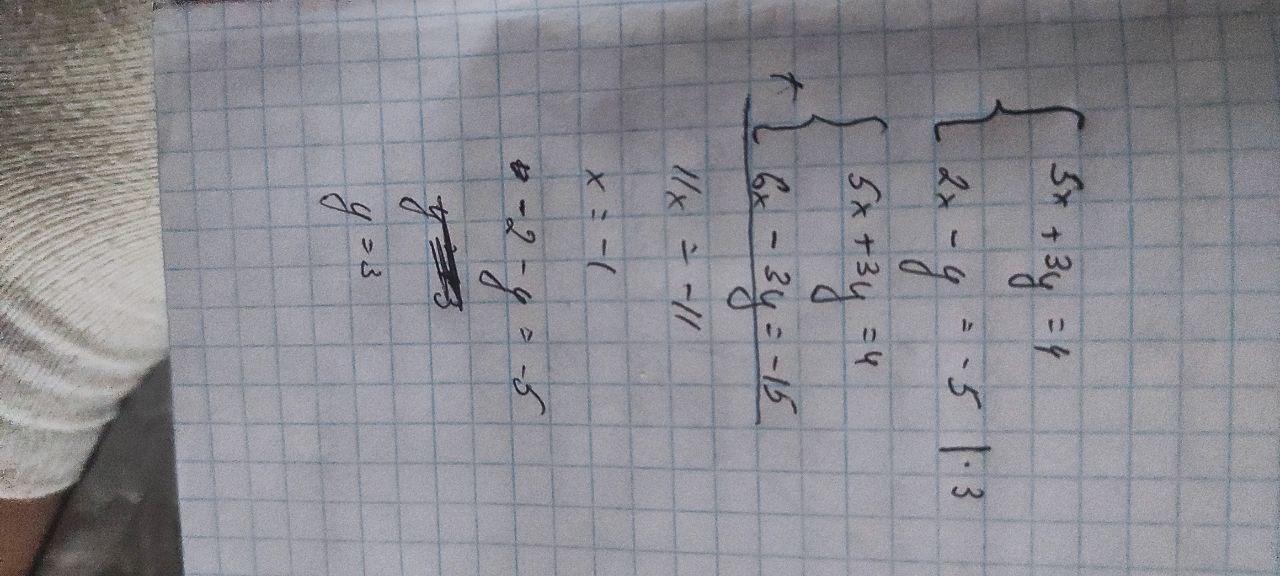 5x + 3y = 4
2x - y = -5 | · 3
5x + 3y = 4
+ 6x - 3y = -15
11x = -11
x = -1
-2 - y = -5
y = 3